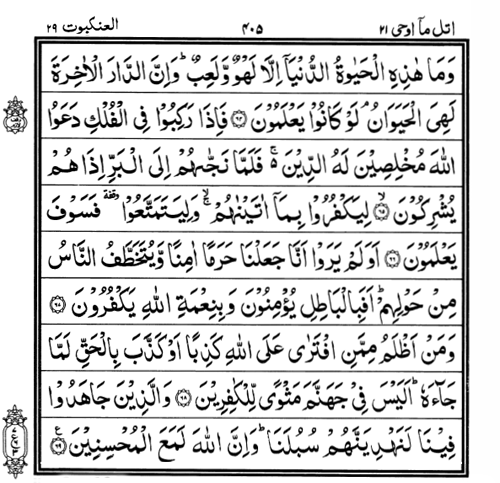 اتل مآ اوحی ۲۱ ۴۰۵ العنكبوت ۲۹
وَمَا هٰذِهِ الْحَيٰوةُ الدُّنْيَآ اِلَّا لَهْوٌ وَّلَعِبٌ ؕ وَاِنَّ الدَّارَ الْاٰخِرَةَ
لَهِيَ الْحَيَوَانُ ۘ لَوْ كَانُوْا يَعْلَمُوْنَ ۝۶۴ فَاِذَا رَكِبُوْا فِي الْفُلْكِ دَعَوُا
اللّٰهَ مُخْلِصِيْنَ لَهُ الدِّيْنَ ۚ۬ فَلَمَّا نَجّٰىهُمْ اِلَى الْبَرِّ اِذَا هُمْ
يُشْرِكُوْنَ ۝۶۵ۙ لِيَكْفُرُوْا بِمَآ اٰتَيْنٰهُمْ ۙۚ وَلِيَتَمَتَّعُوْا ۥ وقفة فَسَوْفَ
يَعْلَمُوْنَ ۝۶۶ اَوَلَمْ يَرَوْا اَنَّا جَعَلْنَا حَرَمًا اٰمِنًا وَّيُتَخَطَّفُ النَّاسُ
مِنْ حَوْلِهِمْ ؕ اَفَبِالْبَاطِلِ يُؤْمِنُوْنَ وَبِنِعْمَةِ اللّٰهِ يَكْفُرُوْنَ ۝۶۷
وَمَنْ اَظْلَمُ مِمَّنِ افْتَرٰى عَلَى اللّٰهِ كَذِبًا اَوْ كَذَّبَ بِالْحَقِّ لَمَّا
جَآءَهٗ ؕ اَلَيْسَ فِيْ جَهَنَّمَ مَثْوًى لِّلْكٰفِرِيْنَ ۝۶۸ وَالَّذِيْنَ جَاهَدُوْا
فِيْنَا لَنَهْدِيَنَّهُمْ سُبُلَنَا ؕ وَاِنَّ اللّٰهَ لَمَعَ الْمُحْسِنِيْنَ ۝۶۹ ع